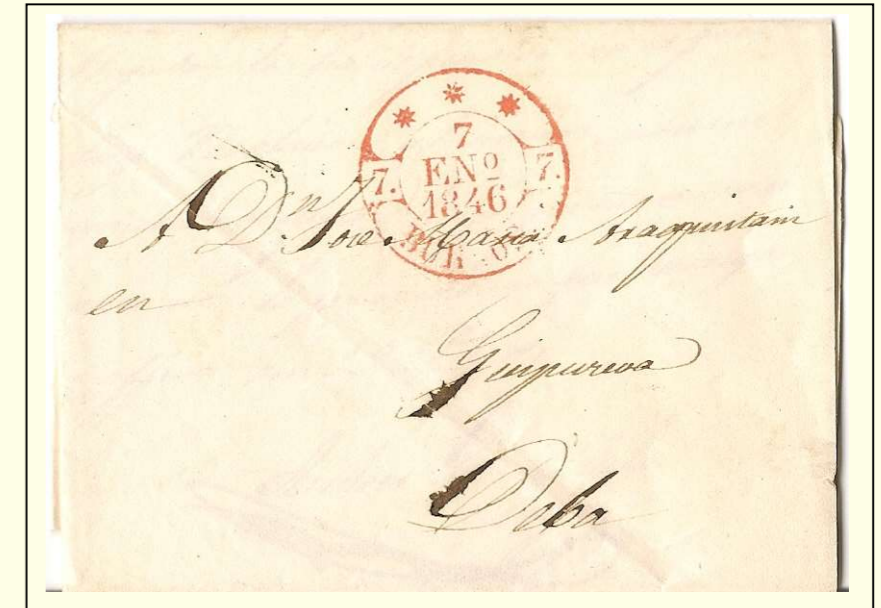 7
7. ENº 7.
1846
BURGOS
A Dn Jose Maria Araquistain
en
Guipuzcoa
Deba